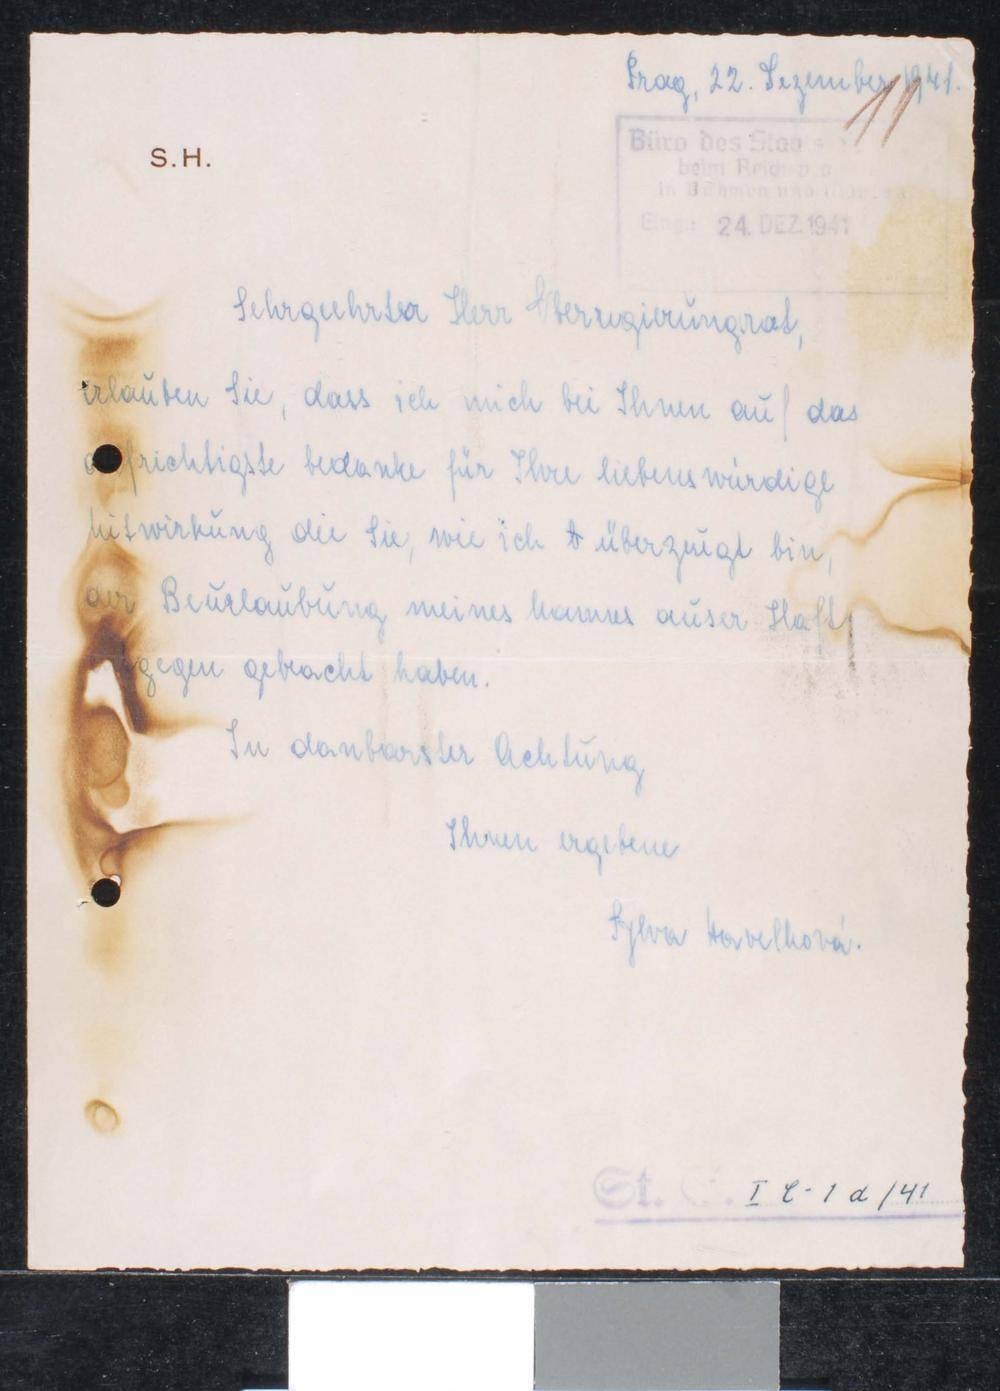 Prag, 22. Dezember 1941.
11
S.H.
Büro des Staats
beim Reichsp
in Böhmen und
Eing.: 24. DEZ. 1941
Sehrgeehrter Herr Oberregierungrat,
erlauben Sie, dass ich mich bei Ihnen auf das
aufrichtigste bedanke für Ihre liebenswürdige
Mitwirkung die Sie, wie ich überzeugt bin,
der Beurlaubung meines Mannes auser Haft
gegen gebracht haben.
In danbarster Achtung
Ihnen ergebene
Sylva Havelková.
St. I C-1 d/41